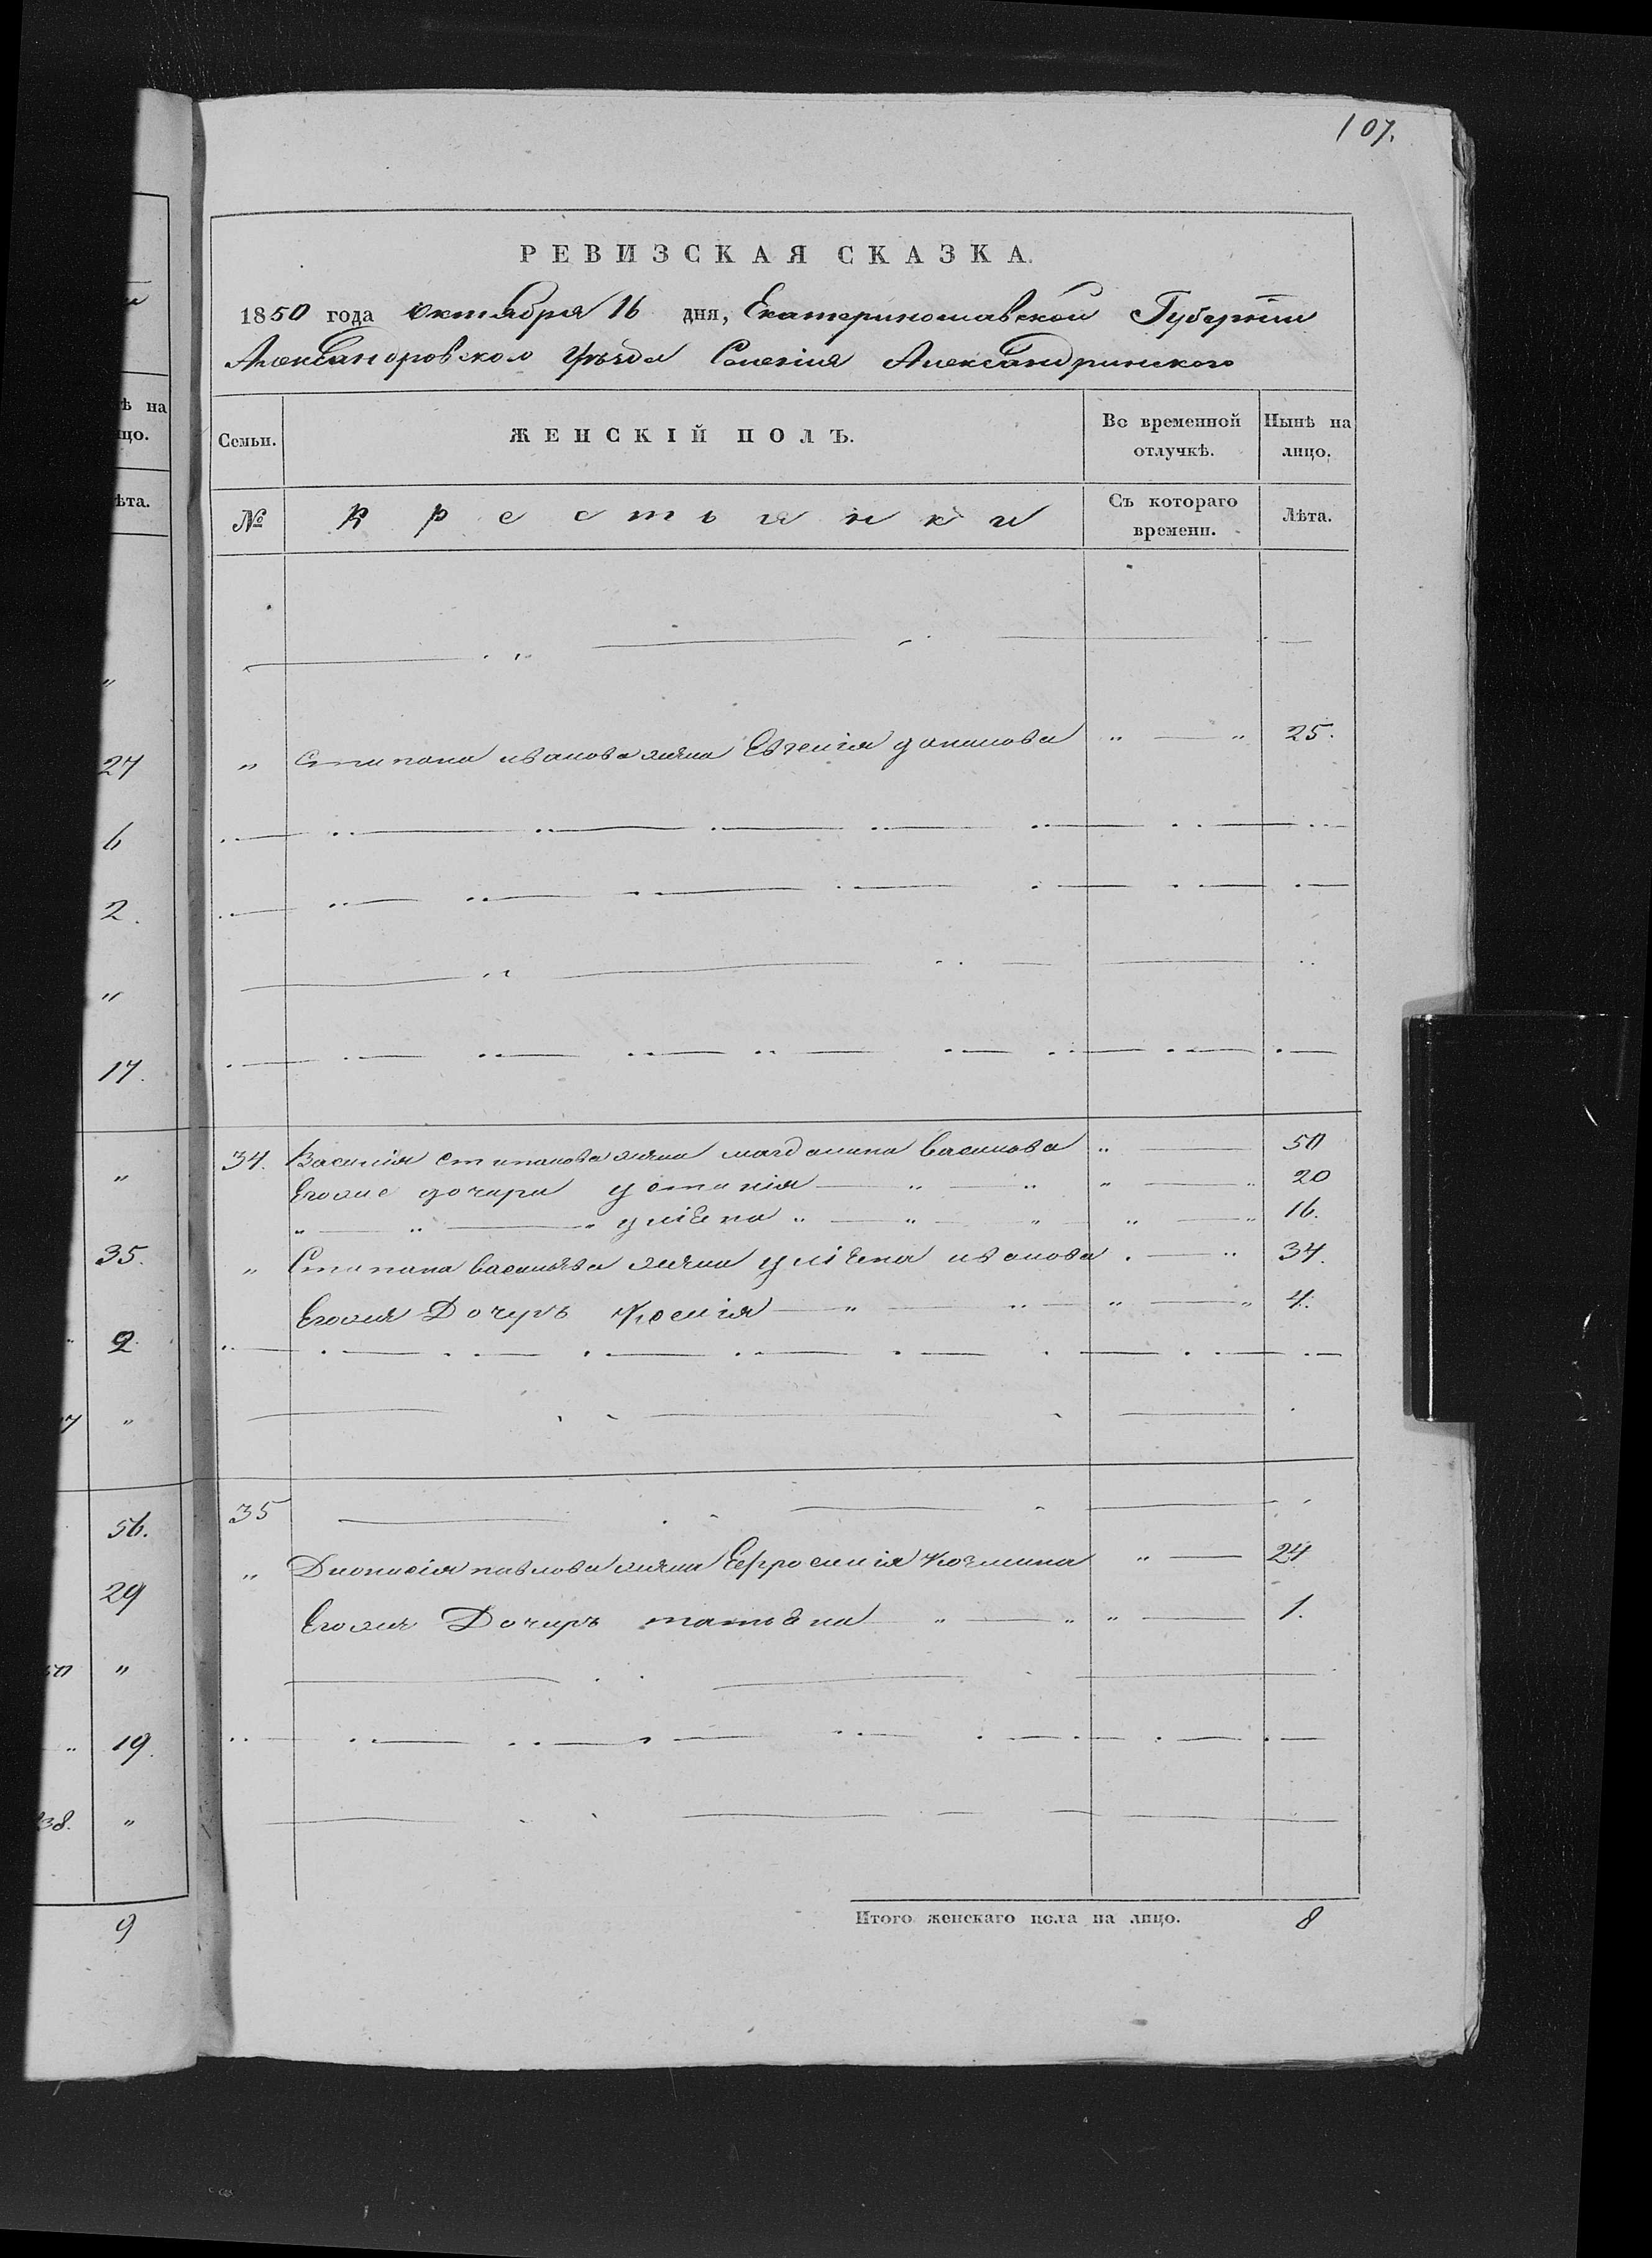 107.
РЕВИЗСКАЯ СКАЗКА.
1850 года октября 16 дня, Екатеринославской Губернии
Александровского уезда Селения Александринского
ѣ на
Семьи. ЖЕНСКІЙ ПОЛЪ. Во временной отлучкѣ. Нынѣ на лицо.
цо.
ѣта.
№ Крестьянки Съ котораго времени. Лѣта.
"
27 " Степана иванова жена Евгения данилова " — " 25.
6
2.
"
17.
" 34. Василия степанова жена магдалина василова " — 50
Егоже дочери устения — " — " " — " 20
" — " — " улiена " — " — " " — " 16.
35. " Степана васильева жена улiена иванова . — " 34.
Егожя Дочерь Ксения — " — " — " — " 4.
2.
7 "
56. 35
" Дионисiя павлова жена Ефросинiя козмина " — 24
29 Егожя Дочерь татьена " — " " — 1.
50 "
" 19.
38. "
Итого женскаго пола на лицо. 8
9